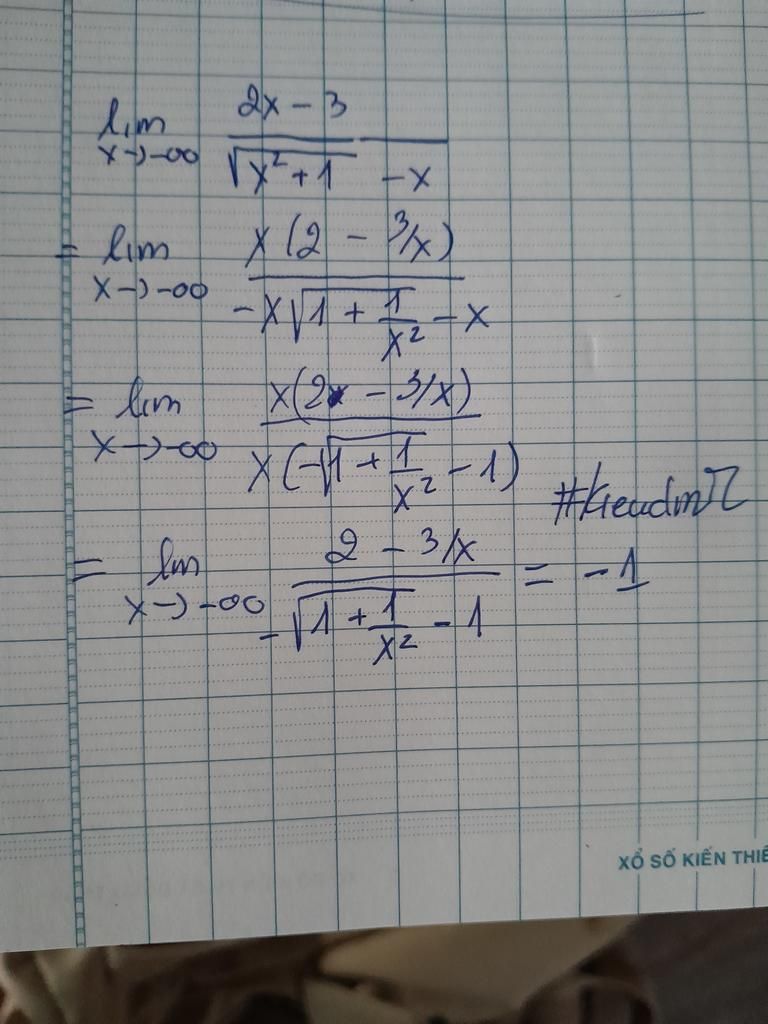 lim x→-∞ (2x - 3)/(√(x² + 1) - x)
= lim x→-∞ x(2 - 3/x)/(-x√(1 + 1/x²) - x)
= lim x→-∞ x(2 - 3/x)/(x(-√(1 + 1/x²) - 1))
= lim x→-∞ (2 - 3/x)/(-√(1 + 1/x²) - 1) = -1
XỔ SỐ KIẾN THIẾ